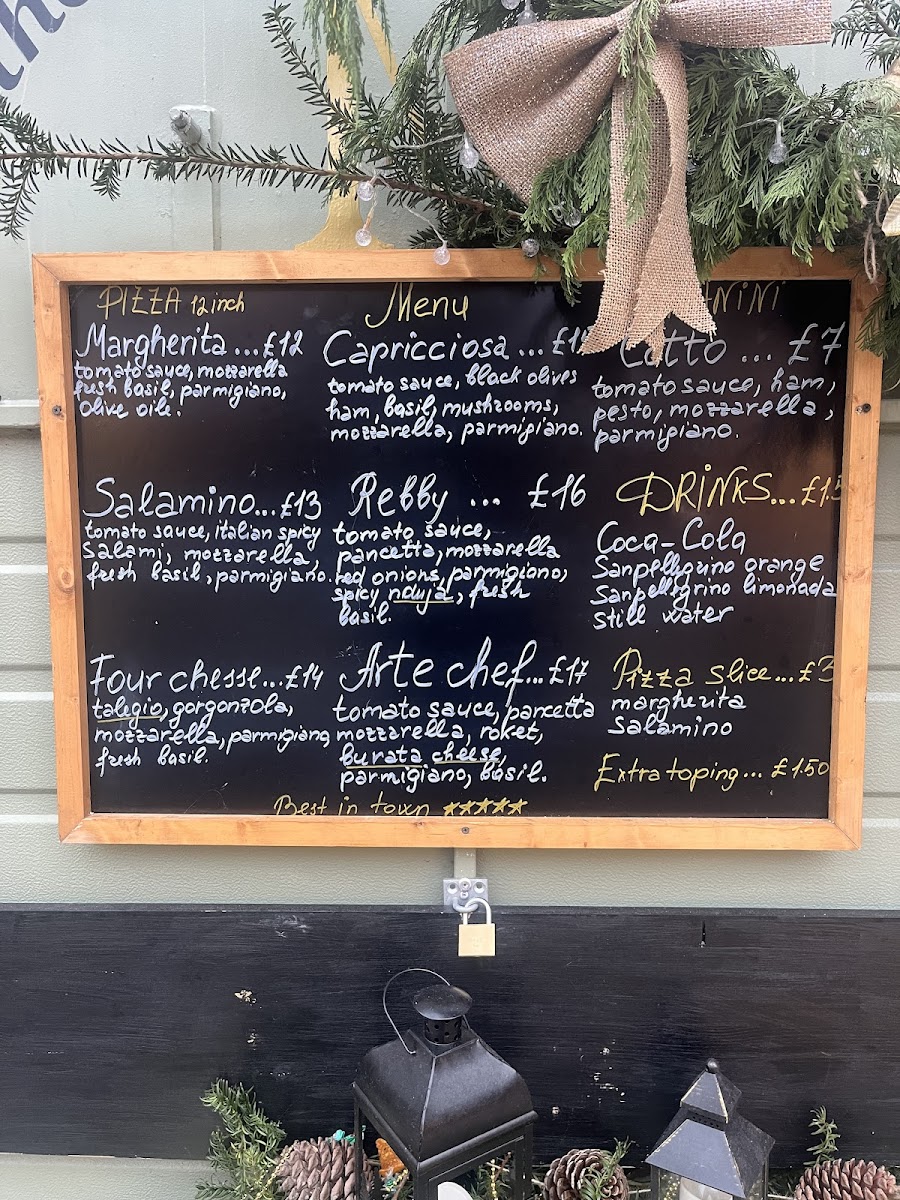 the
PIZZA 12inch
Margherita ... £12
tomato sauce, mozzarella
fresh basil, parmigiano,
Olive oile.
Salamino... £13
tomato sauce, italian spicy
Salami, mozzarella,
fresh basil, parmigiano.
Four chesse... £14
talegio, gorgonzola,
mozzarella, parmigiano,
fresh basil.
Menu
Capricciosa ...
tomato sauce, black olives
ham, basil, mushrooms,
mozzarella, parmigiano.
Rebby ... £16
tomato sauce,
pancetta, mozzarella
red onions, parmigiano,
spicy nduja, fresh
basil.
Arte chef... £17
tomato sauce, pancetta
mozzarella, roket,
burata cheese,
parmigiano, basil.
Best in town ★★★★★
NiNi
Cotto ... £7
tomato sauce, ham,
pesto, mozzarella,
parmigiano.
DRiNKS... £1.5
Coca-Cola
Sanpellegrino orange
Sanpellegrino limonada
still water
Pizza slice... £3
margherita
Salamino
Extra toping... £1.50